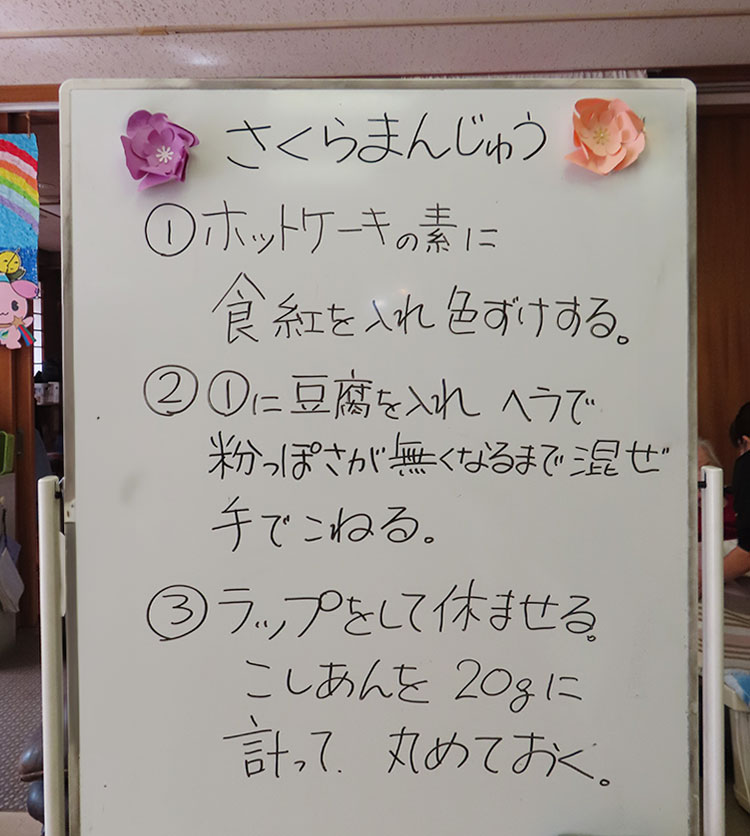 さくらまんじゅう
①ホットケーキの素に
食紅を入れ色ずけする。
②①に豆腐を入れ ヘラで
粉っぽさが無くなるまで混ぜ
手でこねる。
③ラップをして休ませる。
こしあんを 20gに
計って、丸めておく。